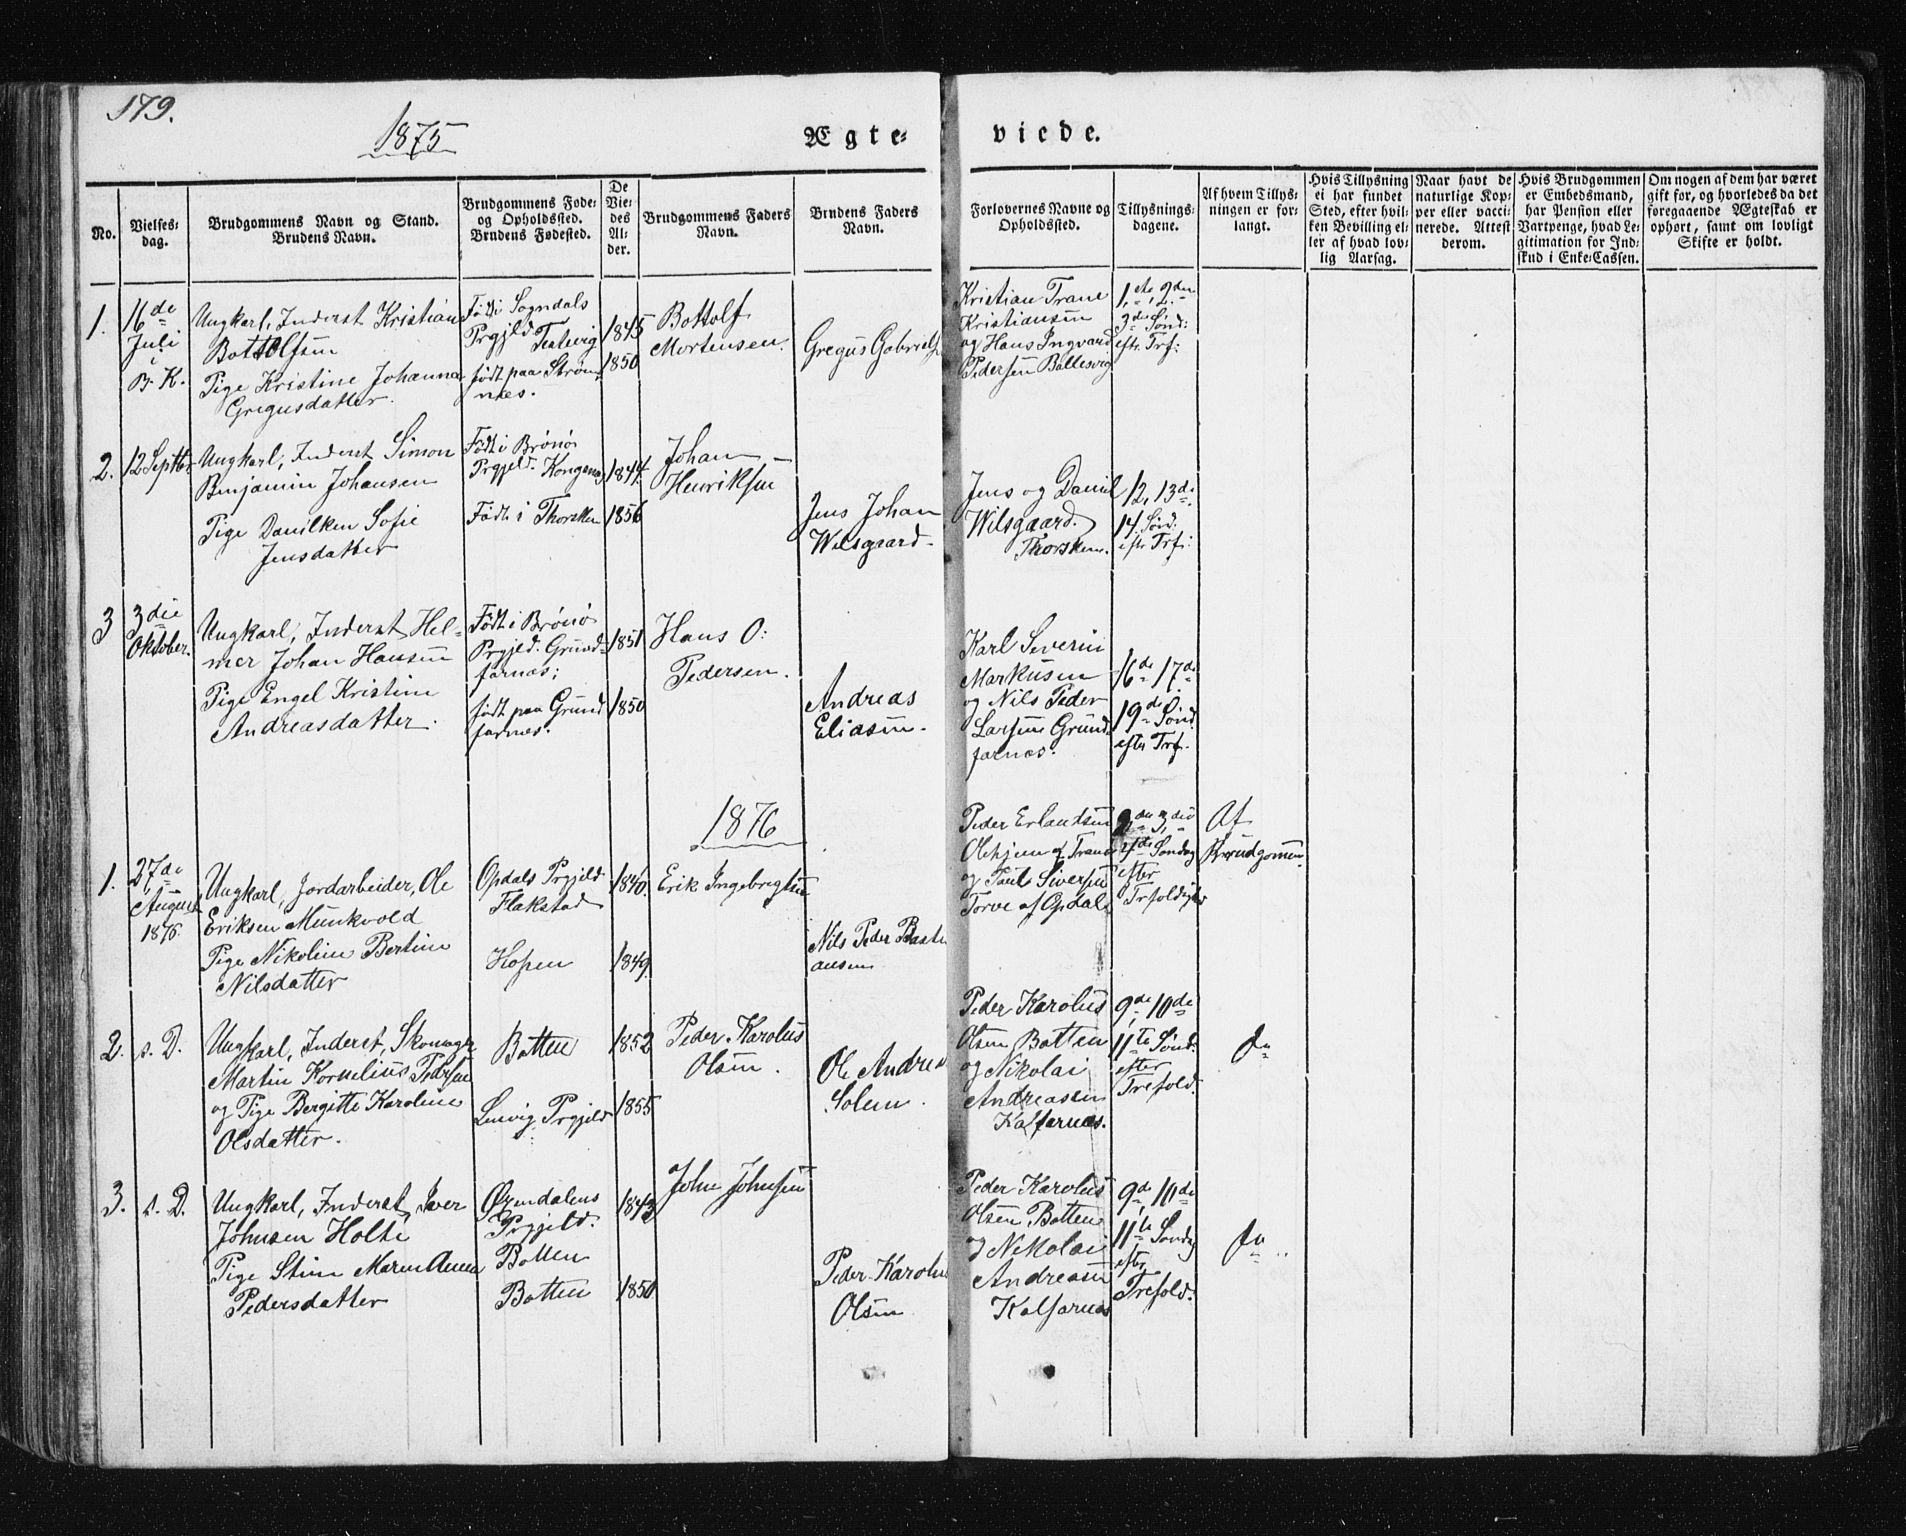 179.
1875
Ægte-
viede.
No.
Vielses-
dag.
Brudgommens Navn og Stand.
Brudens Navn.
Brudgommens Føde-
og Opholdssted.
Brudens Fødested.
De
Vie-
des
Al-
der.
Brudgommens Faders
Navn.
Brudens Faders
Navn.
Forlovernes Navne og
Opholdssted.
Tillysnings-
dagene.
Af hvem Tillys-
ningen er for-
langt.
Hvis Tillysning
ei har fundet
Sted, efter hvil-
ken Bevilling el-
ler af hvad lov-
lig Aarsag.
Naar havt de
naturlige Kop-
per eller vacci-
nerede. Attest
derom.
Hvis Brudgommen
er Embedsmand,
har Pension eller
Vartpenge, hvad Le-
gitimation for Ind-
skud i Enke-Cassen.
Om nogen af dem har været
gift før, og hvorledes da det
foregaaende Ægteskab er
ophørt, samt om lovligt
Skifte er holdt.
1.
16de
Juli
i
B. K.
Ungkarl, Inderst Kristian
Bottolfsen
Pige Kristine Johanna
Gregusdatter.
Født i Sogndals
Prgjeld
født paa Strøm-
nes.
1845
1850
Bottolf
Mortensen.
Gregus Gabriels
Kristian Trane
Kristiansen
og Hans Ingvard
Pedersen Ballesvig
1ste, 2den
3de Sønd:
eftr. Trf:
2.
12 Septbr
Ungkarl, Inderst Simon
Benjamin Johansen
Pige Danilken Sofie
Jensdatter
Født i Brønø
Prgjeld.
Født i Thorsken
1844.
1856
Johan
Henriksen
Jens Johan
Wilsgaard.
Jens og Daniel
Wilsgaard.
Thorsken.
12, 13de
14 Sønd:
eftr Trf:
3
3die
Oktober.
Ungkarl, Inderst Hel-
mer Johan Hansen
Pige Engel Kristine
Andreasdatter.
Født i Brønø
Prgjeld. Grund-
farnes;
født paa Grund
farnes.
1851
1850
Hans O:
Pedersen.
Andreas
Eliasen.
Karl Severin
Markusen
og Nils Peder
Larsen Grund-
farnes.
16de 17de
19de Sønd.
efter Trf.
1876
1.
27de
August
1876
Ungkarl, Jordarbeider, Ole
Eriksen Munkvold
Pige Nikoline Bertine
Nilsdatter
Opdals Prgjeld
Flakstad
Hopen
1840.
1849.
Erik Ingebrigtsen
Nils Peder Basti
ansen
Peder Erlandsen
af Trane
og Paul Siversen
Torve af Opdal
2den 3die
4de Søndag
efter
Trefoldighed
Af
Brudgomen
2.
s. D.
Ungkarl, Inderst, Skomager
Martin Kornelius Pedersen
og Pige Bergitte Karoline
Olsdatter.
Botten
Lenvig Prgjeld
1852
1855
Peder Karolus
Olsen.
Ole Andrea
Solem.
Peder Karolus
Olsen Botten
og Nikolai
Andreasen
Kalfarnes.
9de, 10de
11te Sønd:
efter
Trefold.
do
3.
s. D.
Ungkarl, Inderst Iver
Johnsen Holte
Pige Stine Maren Anna
Pedersdatter
Øxendalens
Prgjeld.
Botten
Botten
1843
1850
John Johnsen
Peder Karolus
Olsen
Peder Karolus
Olsen Botten
og Nikolai
Andreasen
Kalfarnes
9de, 10de
11te Søndag
efter
Trefold.
do